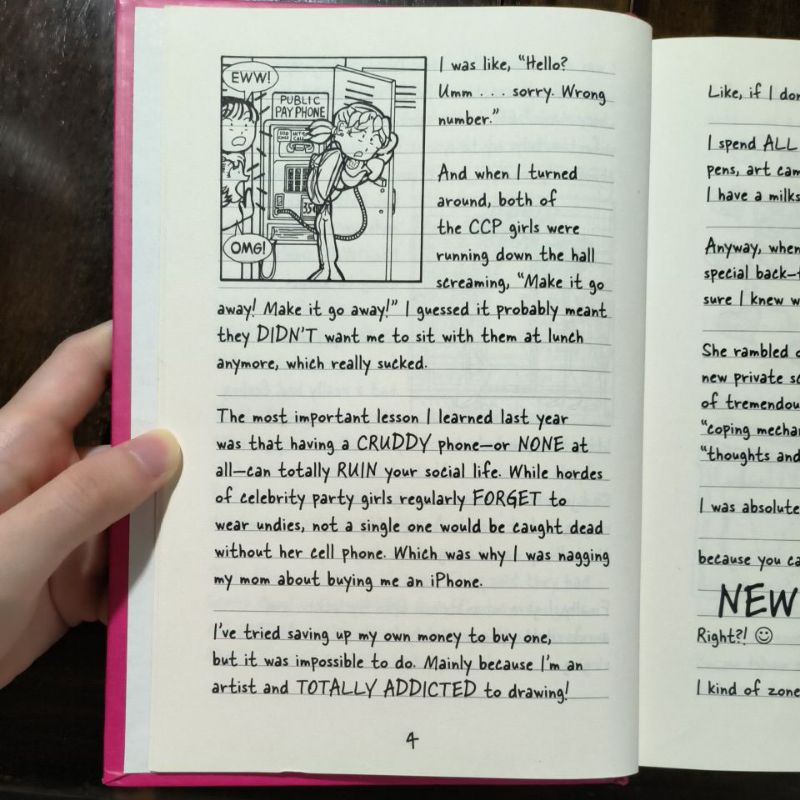 EWW!
PUBLIC
PAY PHONE
35¢
OMG!
I was like, “Hello?
Umm . . . sorry. Wrong
number.”
And when I turned
around, both of
the CCP girls were
running down the hall
screaming, “Make it go
away! Make it go away!” I guessed it probably meant
they DIDN’T want me to sit with them at lunch
anymore, which really sucked.
The most important lesson I learned last year
was that having a CRUDDY phone—or NONE at
all—can totally RUIN your social life. While hordes
of celebrity party girls regularly FORGET to
wear undies, not a single one would be caught dead
without her cell phone. Which was why I was nagging
my mom about buying me an iPhone.
I’ve tried saving up my own money to buy one,
but it was impossible to do. Mainly because I’m an
artist and TOTALLY ADDICTED to drawing!
4
Like, if I
I spend ALL
pens, art
I have a
Anyway,
special
sure I knew
She rambled
new private
of
“coping
“thoughts and
I was
because you
NEW
Right?! ☺
I kind of